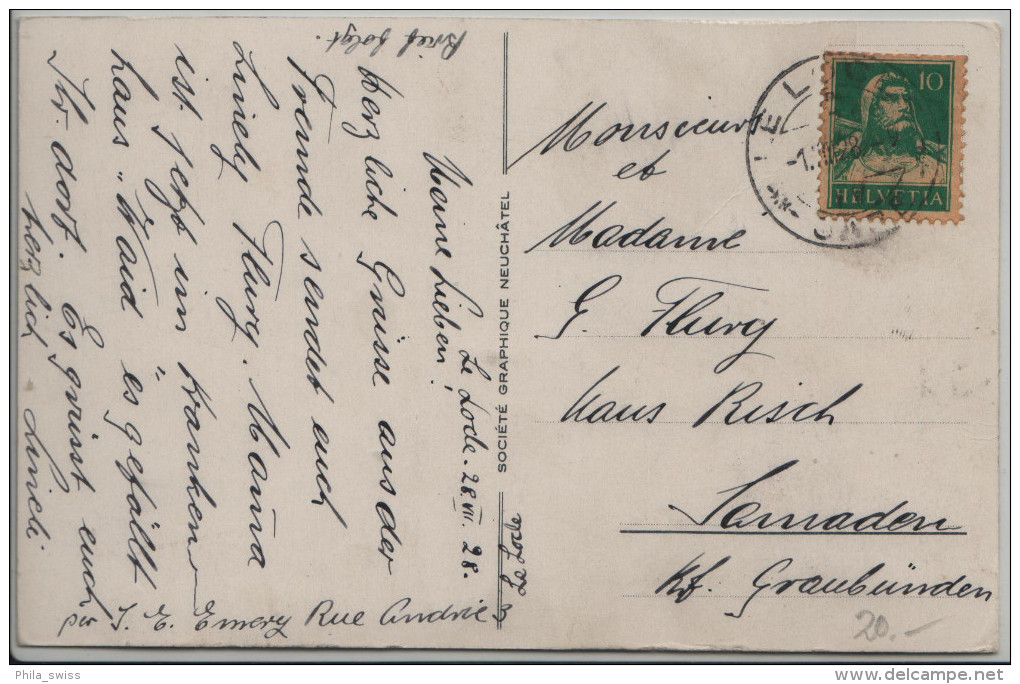 Brief folgt.
Le Locle. 28 VII. 28.
Meine Lieben!
Herzliche Grüsse aus der
Fremde sendet euch
Linely Flury. Mama
ist jetzt im Kranken
haus „Waid" es gefällt
Ihr dort. Es grüsst euch
herzlich Lineli
per J. E. Emery Rue Andrie 3
Le Locle
SOCIÉTÉ GRAPHIQUE NEUCHÂTEL
Monsieur
et
Madame
G. Flury
Haus Risch
Samaden
Kt. Graubünden
10
HELVETIA
LE LOCLE
20.-
Phila_swiss
delcampe.net